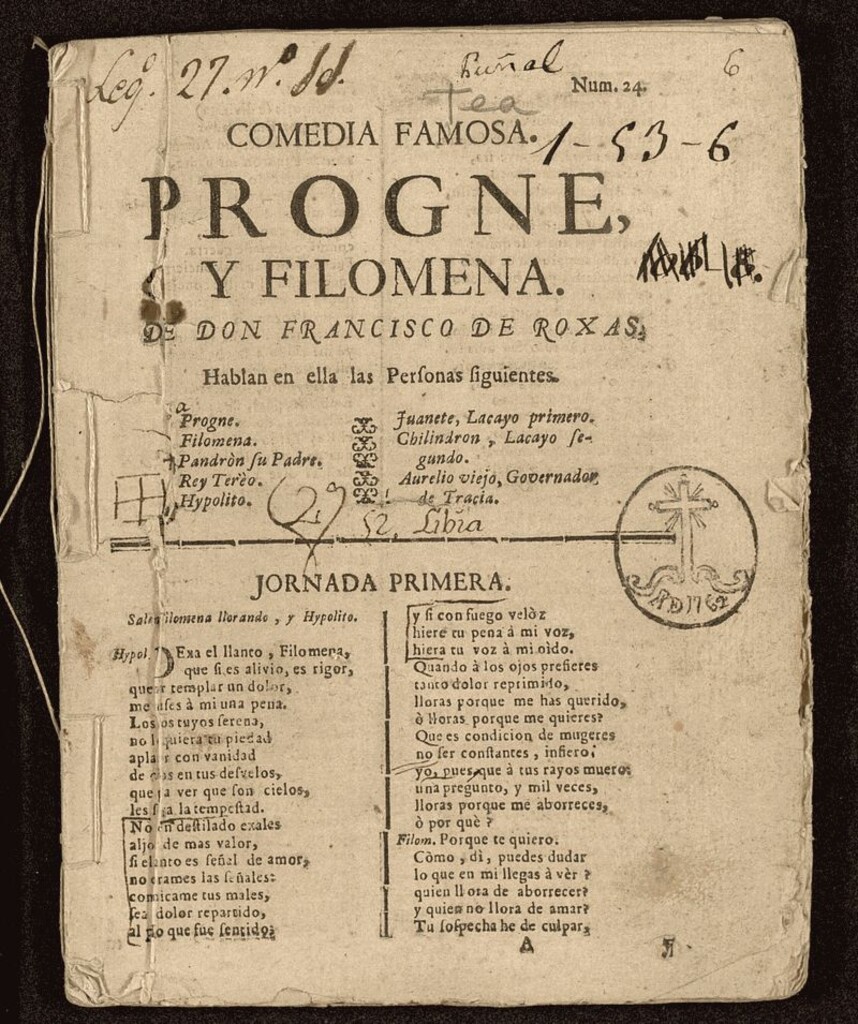 Leg.º 27. n.º
Puñal
6
Num. 24.
Tea
COMEDIA FAMOSA.
1-53-6
PROGNE,
Y FILOMENA.
DE DON FRANCISCO DE ROXAS.
Hablan en ella las Perſonas ſiguientes.
Progne.
Filomena.
Pandròn ſu Padre.
Rey Terèo.
Hypolito.
Juanete, Lacayo primero.
Chilindron, Lacayo ſe-
gundo.
Aurelio viejo, Governador
de Tracia.
52. Libia
AD1762
JORNADA PRIMERA.
Sale Filomena llorando, y Hypolito.
Hypol. DExa el llanto, Filomena,
que ſi es alivio, es rigor,
templar un dolor,
me à mi una pena.
Los tuyos ſerena,
no quiera tu piedad
con vanidad
de en tus deſvelos,
que à ver que ſon cielos,
les la tempeſtad.
No deſtilado exales
de mas valor,
ſi el llanto es ſeñal de amor,
no las ſeñales:
tus males,
ſea dolor repartido,
al que fue ſentido;
y ſi con fuego velòz
hiere tu pena à mi voz,
hiera tu voz à mi oìdo.
Quando à los ojos prefieres
tanto dolor reprimido,
lloras porque me has querido,
ò lloras porque me quieres?
Que es condicion de mugeres
no ſer conſtantes, infiero;
yo, pues, que à tus rayos muero,
una pregunto, y mil veces,
lloras porque me aborreces,
ò por què?
Filom. Porque te quiero.
Còmo, dì, puedes dudar
lo que en mi llegas à vèr?
quien llora de aborrecer?
y quien no llora de amar?
Tu ſoſpecha he de culpar,
A